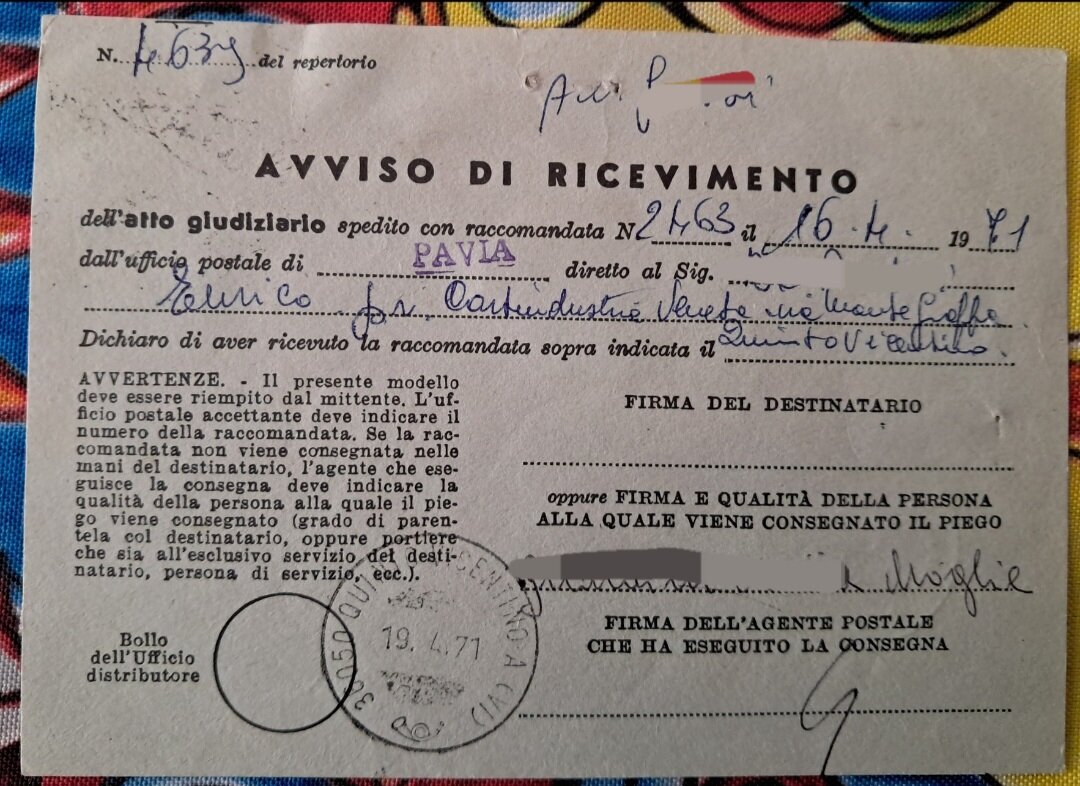 N. 4639 del repertorio
AVVISO DI RICEVIMENTO
dell'atto giudiziario spedito con raccomandata N 2463 il 16.4. 1971
dall'ufficio postale di PAVIA diretto al Sig.
Enrico pr. Cartindustria Veneta via Monte Grappa
Dichiaro di aver ricevuto la raccomandata sopra indicata il Quinto Vicentino.
AVVERTENZE. - Il presente modello
deve essere riempito dal mittente. L'uf-
ficio postale accettante deve indicare il
numero della raccomandata. Se la rac-
comandata non viene consegnata nelle
mani del destinatario, l'agente che ese-
guisce la consegna deve indicare la
qualità della persona alla quale il pie-
go viene consegnato (grado di paren-
tela col destinatario, oppure portiere
che sia all'esclusivo servizio del desti-
natario, persona di servizio, ecc.).
FIRMA DEL DESTINATARIO
oppure FIRMA E QUALITÀ DELLA PERSONA
ALLA QUALE VIENE CONSEGNATO IL PIEGO
Moglie
FIRMA DELL'AGENTE POSTALE
CHE HA ESEGUITO LA CONSEGNA
Bollo
dell'Ufficio
distributore
36050 QUINTO VICENTINO A (VI)
19.4.71